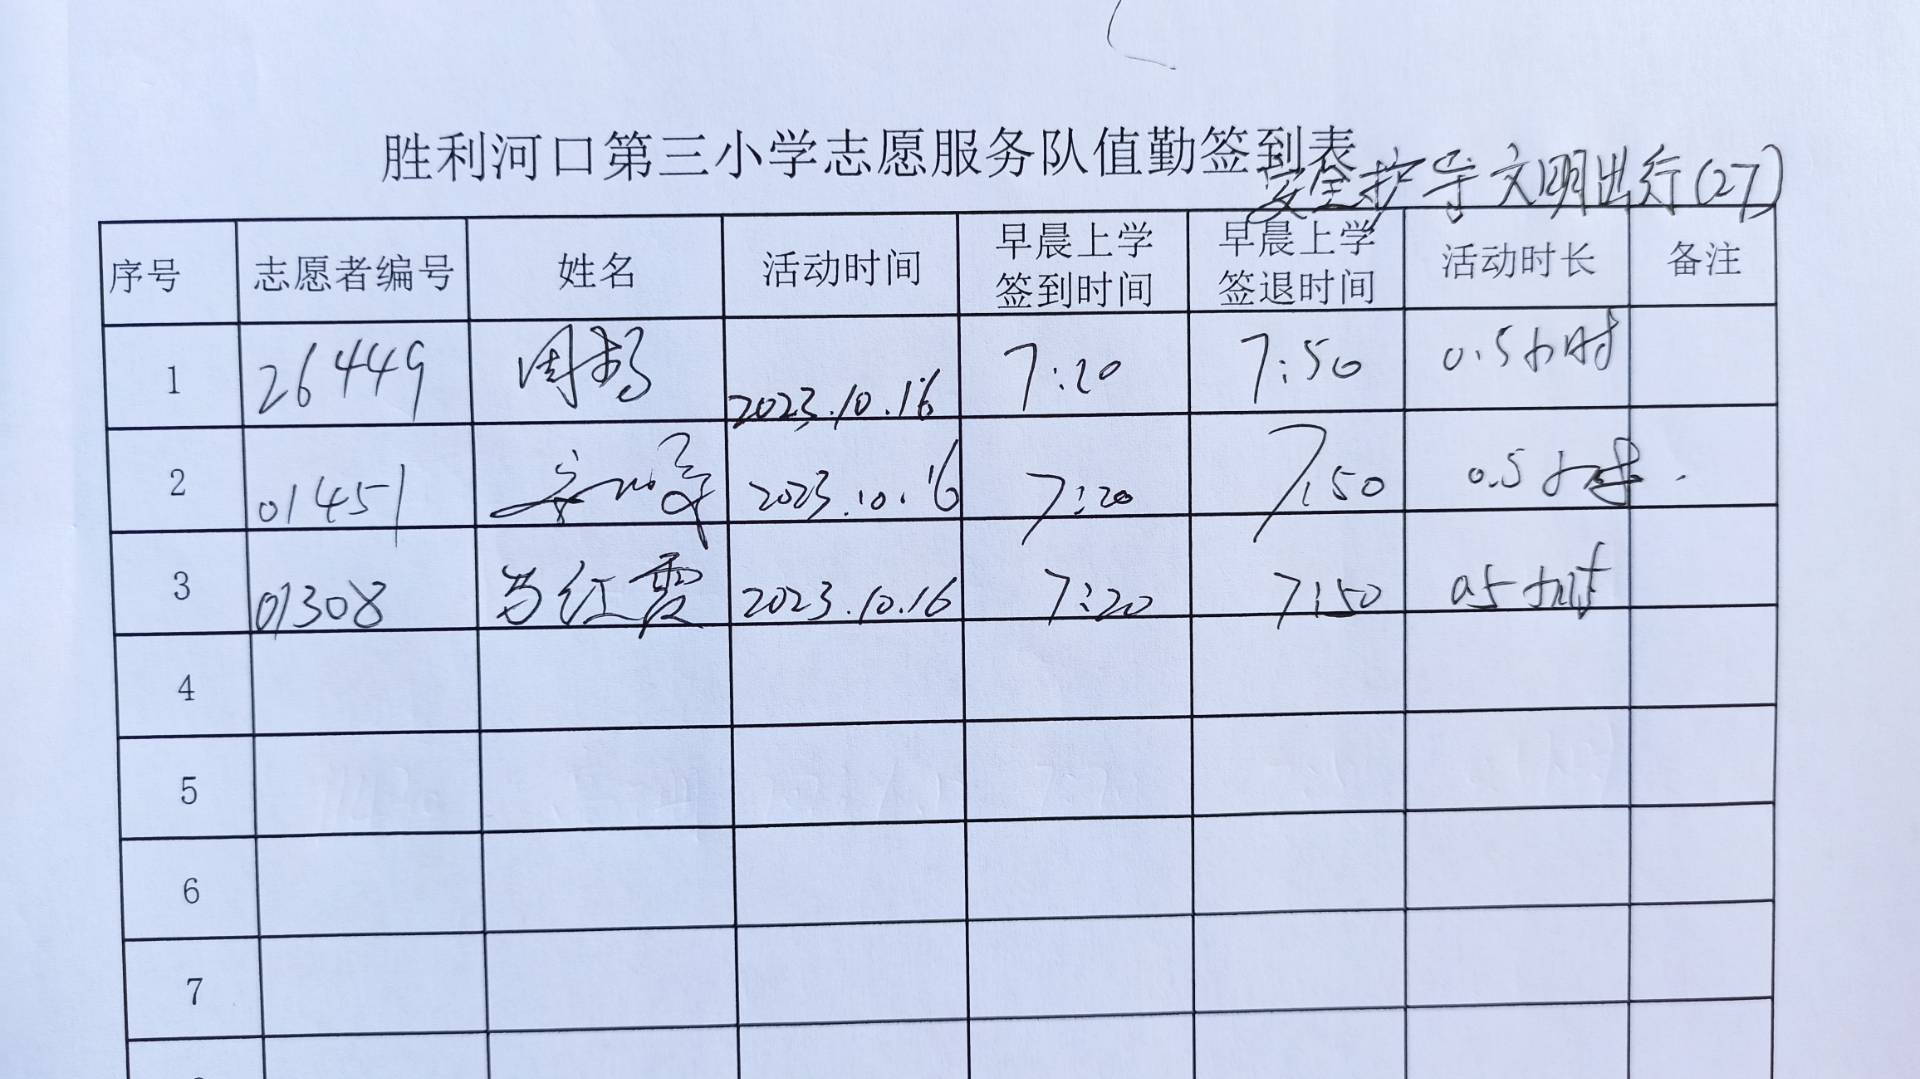 胜利河口第三小学志愿服务队值勤签到表
安全护导文明出行(27)
序号 志愿者编号 姓名 活动时间 早晨上学签到时间 早晨上学签退时间 活动时长 备注
1 26449 周 2023.10.16 7:20 7:50 0.5小时
2 01451 2023.10.16 7:20 7:50 0.5小时
3 01308 红霞 2023.10.16 7:20 7:50 0.5小时
4
5
6
7